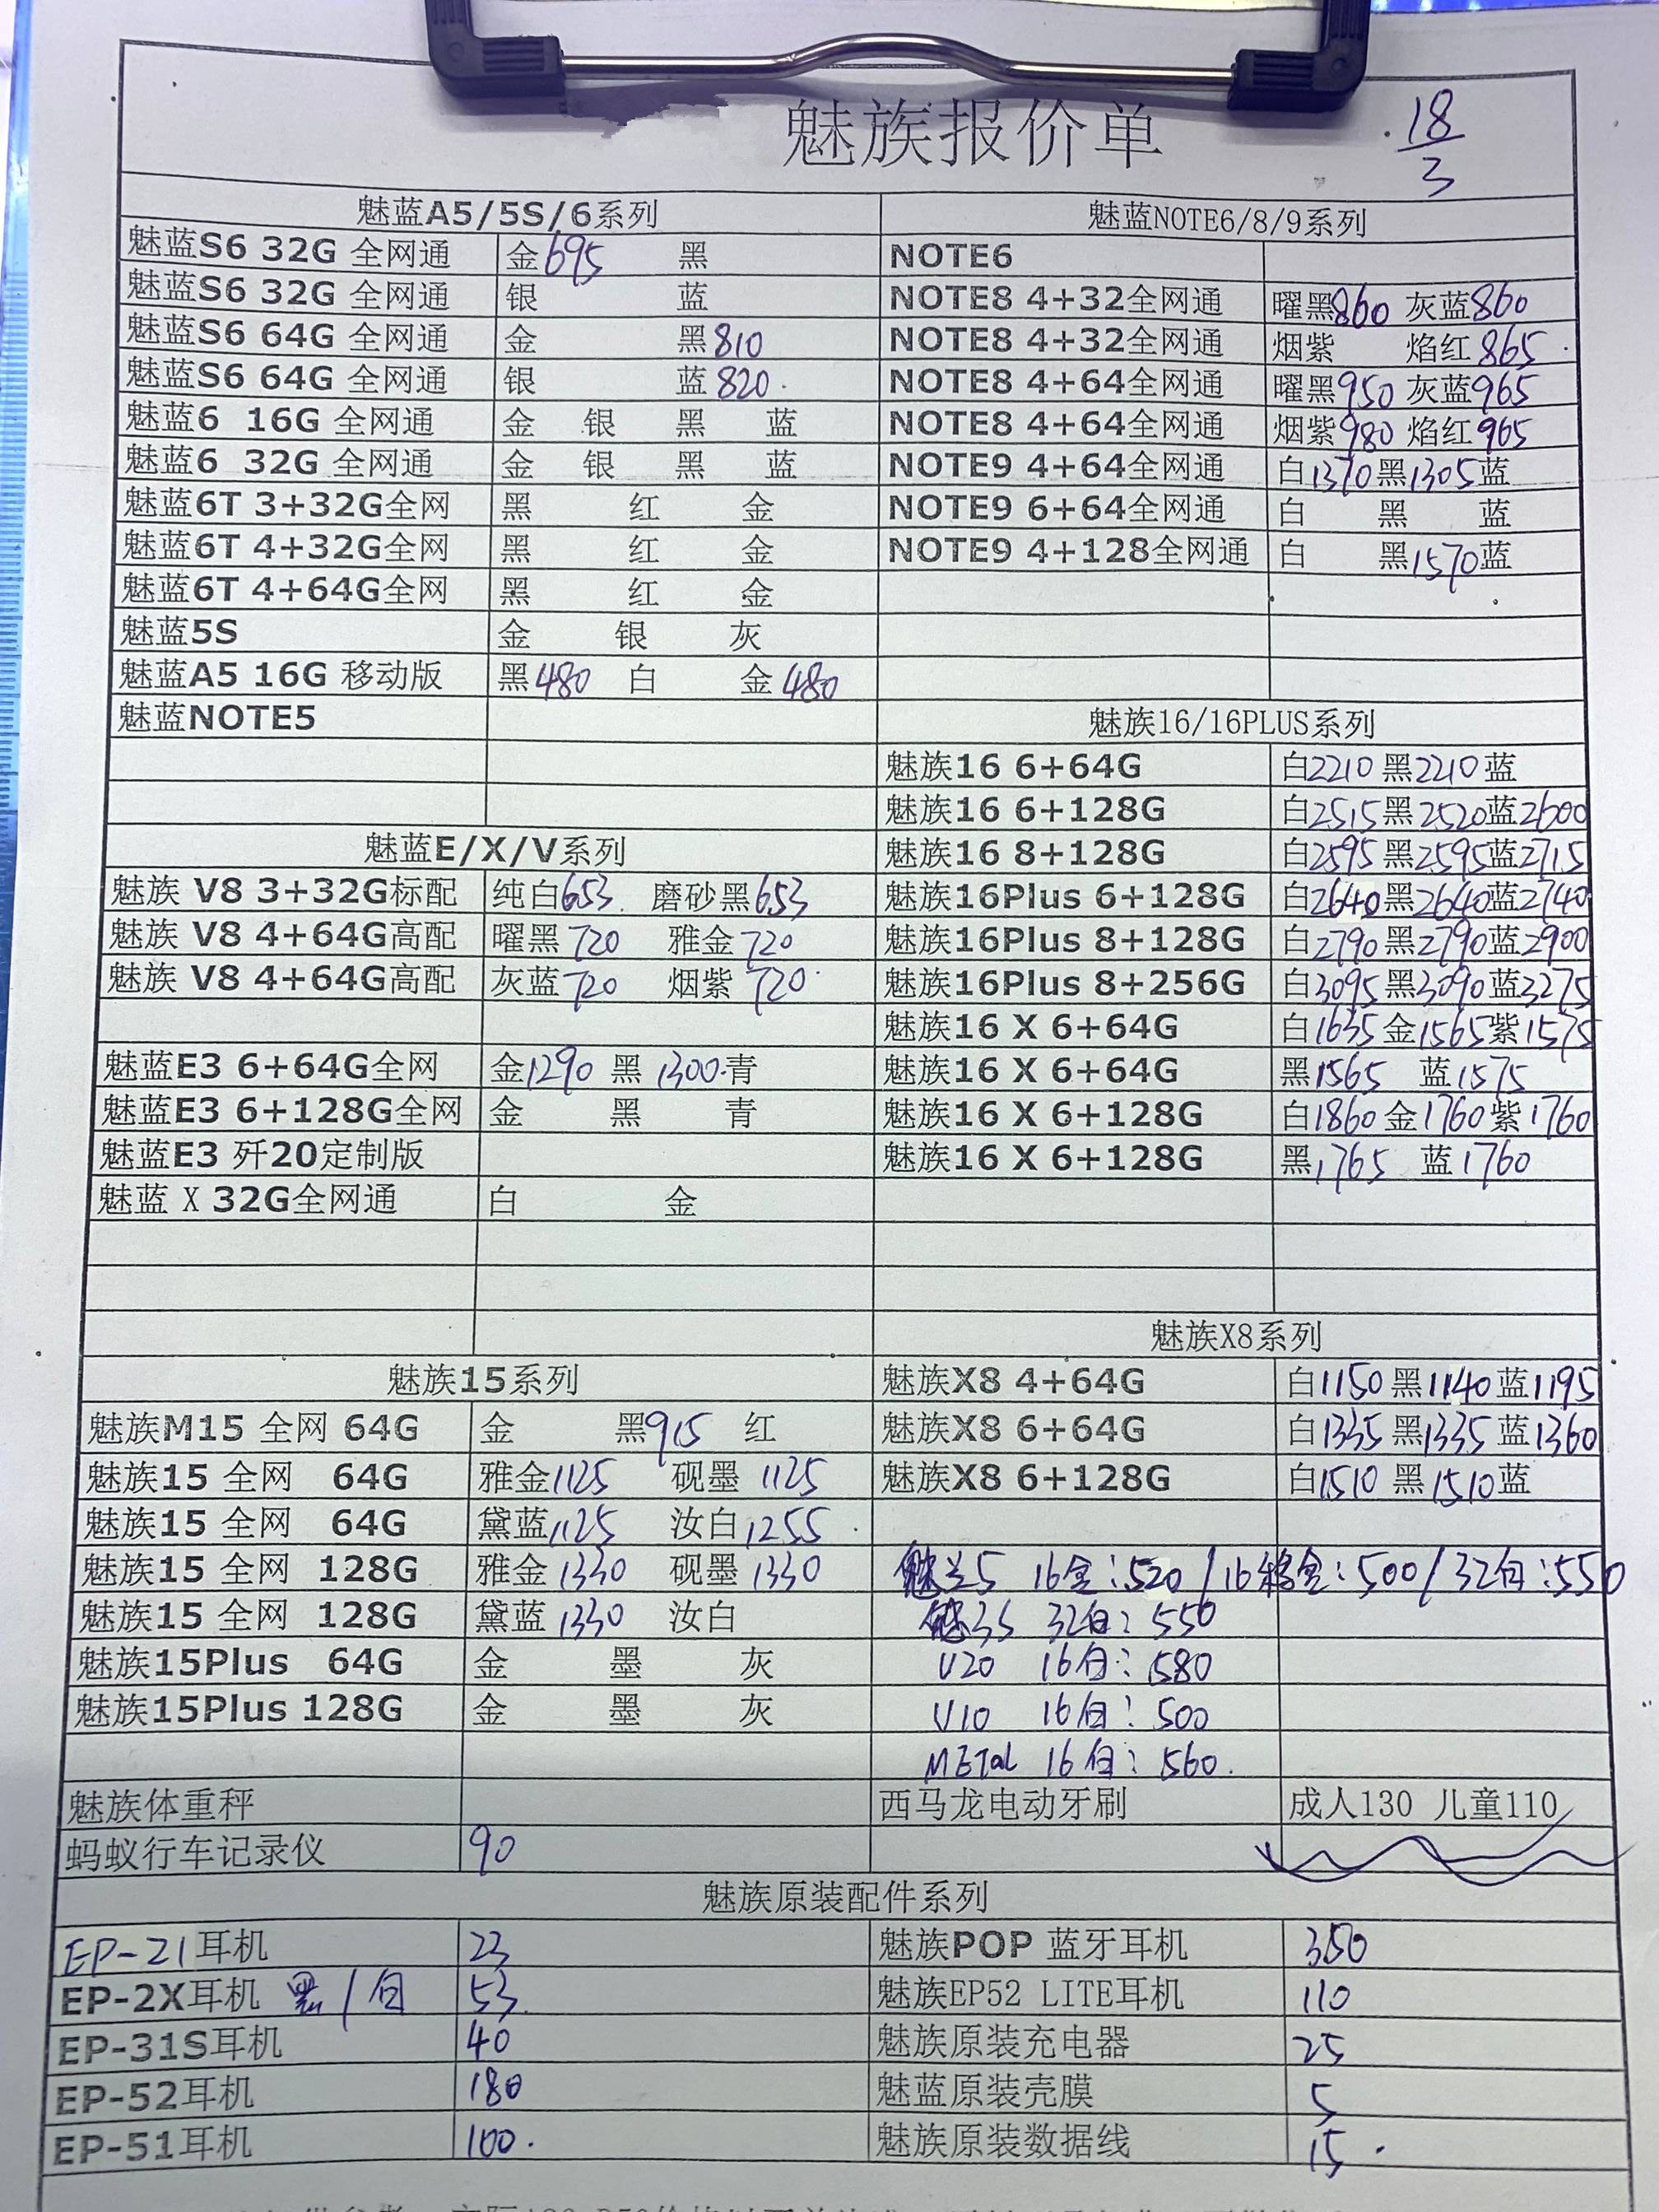 魅族报价单
18/3
魅蓝A5/5S/6系列
魅蓝S6 32G 全网通 金695 黑
魅蓝S6 32G 全网通 银 蓝
魅蓝S6 64G 全网通 金 黑810
魅蓝S6 64G 全网通 银 蓝820
魅蓝6 16G 全网通 金 银 黑 蓝
魅蓝6 32G 全网通 金 银 黑 蓝
魅蓝6T 3+32G全网 黑 红 金
魅蓝6T 4+32G全网 黑 红 金
魅蓝6T 4+64G全网 黑 红 金
魅蓝5S 金 银 灰
魅蓝A5 16G 移动版 黑480 白 金480
魅蓝NOTE5
魅蓝E/X/V系列
魅族 V8 3+32G标配 纯白653 磨砂黑653
魅族 V8 4+64G高配 曜黑720 雅金720
魅族 V8 4+64G高配 灰蓝720 烟紫720
魅蓝E3 6+64G全网 金1290 黑1300 青
魅蓝E3 6+128G全网 金 黑 青
魅蓝E3 歼20定制版
魅蓝 X 32G全网通 白 金
魅族15系列
魅族M15 全网 64G 金 黑915 红
魅族15 全网 64G 雅金1125 砚墨1125
魅族15 全网 64G 黛蓝1125 汝白1255
魅族15 全网 128G 雅金1330 砚墨1330
魅族15 全网 128G 黛蓝1330 汝白
魅族15Plus 64G 金 墨 灰
魅族15Plus 128G 金 墨 灰
魅族体重秤
蚂蚁行车记录仪 90
魅蓝NOTE6/8/9系列
NOTE6
NOTE8 4+32全网通 曜黑860 灰蓝860
NOTE8 4+32全网通 烟紫 焰红865
NOTE8 4+64全网通 曜黑950 灰蓝965
NOTE8 4+64全网通 烟紫980 焰红965
NOTE9 4+64全网通 白1370黑1305蓝
NOTE9 6+64全网通 白 黑 蓝
NOTE9 4+128全网通 白 黑1570蓝
魅族16/16PLUS系列
魅族16 6+64G 白2210 黑2210 蓝
魅族16 6+128G 白2515黑2520蓝2600
魅族16 8+128G 白2595 黑2595蓝2715
魅族16Plus 6+128G 白2640黑2640蓝2740
魅族16Plus 8+128G 白2790黑2790蓝2900
魅族16Plus 8+256G 白3095黑3090蓝3275
魅族16 X 6+64G 白1635 金1565紫1575
魅族16 X 6+64G 黑1565 蓝1575
魅族16 X 6+128G 白1860 金1760 紫1760
魅族16 X 6+128G 黑1765 蓝1760
魅族X8系列
魅族X8 4+64G 白1150 黑1140 蓝1195
魅族X8 6+64G 白1335 黑1335 蓝1360
魅族X8 6+128G 白1510 黑1510蓝
魅兰5 16金:520/16移金:500/32白:550
3S 32白:550
U20 16白:580
U10 16白:500
METal 16白:560
西马龙电动牙刷 成人130 儿童110
魅族原装配件系列
EP-21耳机 23
EP-2X耳机 黑/白 53
EP-31S耳机 40
EP-52耳机 180
EP-51耳机 100
魅族POP 蓝牙耳机 350
魅族EP52 LITE耳机 110
魅族原装充电器 25
魅蓝原装壳膜 5
魅族原装数据线 15